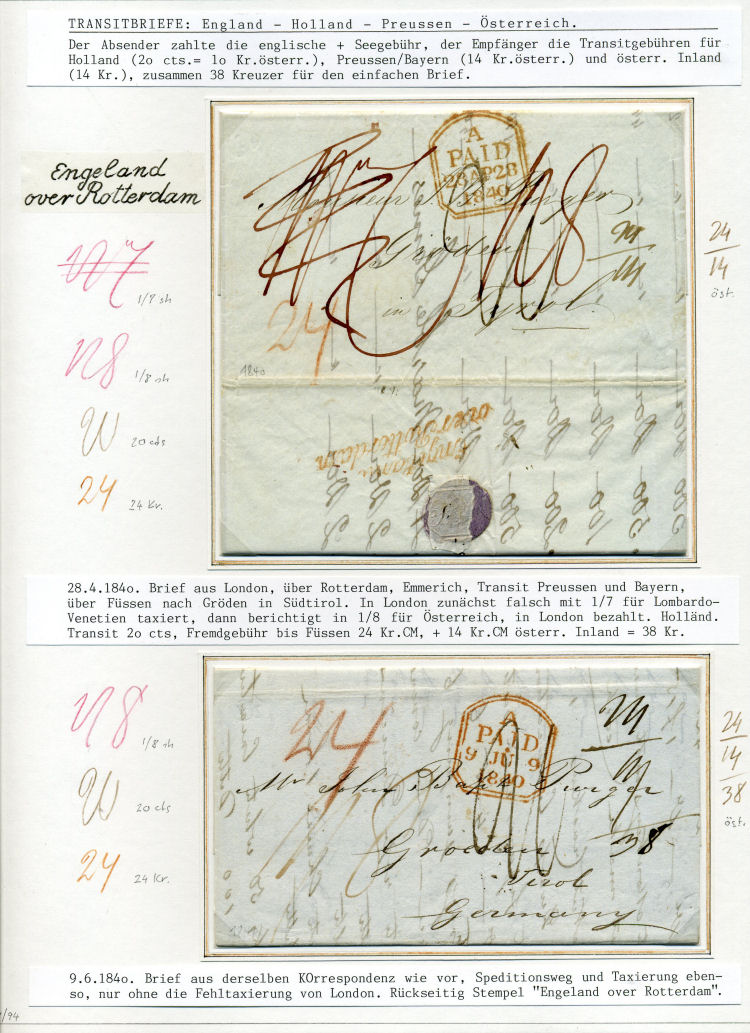 TRANSITBRIEFE: England - Holland - Preussen - Österreich.
Der Absender zahlte die englische + Seegebühr, der Empfänger die Transitgebühren für
Holland (2o cts.= 1o Kr.österr.), Preussen/Bayern (14 Kr.österr.) und österr. Inland
(14 Kr.), zusammen 38 Kreuzer für den einfachen Brief.
Engeland
over Rotterdam
1/7 sh
1/8 sh
20 cts
24
24 Kr.
A
PAID
28 AP 28
1840
Gröden
in Tyrol
24
1840
Engeland
over Rotterdam
24
14
öst.
28.4.184o. Brief aus London, über Rotterdam, Emmerich, Transit Preussen und Bayern,
über Füssen nach Gröden in Südtirol. In London zunächst falsch mit 1/7 für Lombardo-
Venetien taxiert, dann berichtigt in 1/8 für Österreich, in London bezahlt. Holländ.
Transit 2o cts, Fremdgebühr bis Füssen 24 Kr.CM, + 14 Kr.CM österr. Inland = 38 Kr.
1/8 sh
20 cts
24
24 Kr.
24
A
PAID
9 JU 9
1840
Mr John Bapt Purger
Groeden
38
Tirol
Germany
24
14
38
öst.
9.6.184o. Brief aus derselben KOrrespondenz wie vor, Speditionsweg und Taxierung eben-
so, nur ohne die Fehltaxierung von London. Rückseitig Stempel "Engeland over Rotterdam".
/94